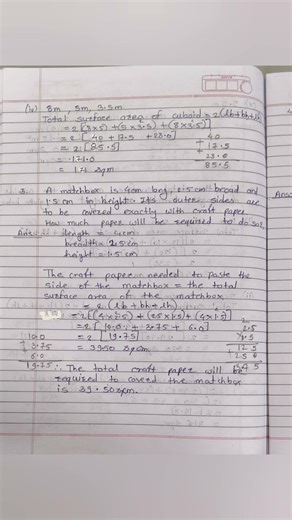 (iv) 8m, 5m, 3.5m
Total surface area of cuboid = 2(lb+bh+lh)
= 2[(8×5) + (5×3.5) + (8×3.5)]
= 2 [40 + 17.5 + 28.0]
= 2 [85.5]
= 171.0
= 171 sqm
40
+ 17.5
+ 28.0
85.5
3. A matchbox is 4cm long, 2.5cm broad and
1.5cm in height. Its outer sides are
to be covered exactly with craft paper.
How much paper will be required to do so?
Ans: length = 4cm
breadth = 2.5cm
height = 1.5cm
The craft paper needed to paste the
side of the matchbox = the total
surface area of the matchbox
= 2 (lb + bh + lh)
= 2[(4×2.5) + (2.5×1.5) + (4×1.5)]
= 2[10.0 + 3.75 + 6.0]
= 2 [19.75]
= 39.50 sqcm
10.0
+ 3.75
6.0
19.75
2.5
12 5
∴ The total craft paper will be
required to cover the matchbox
is 39.50sqcm.